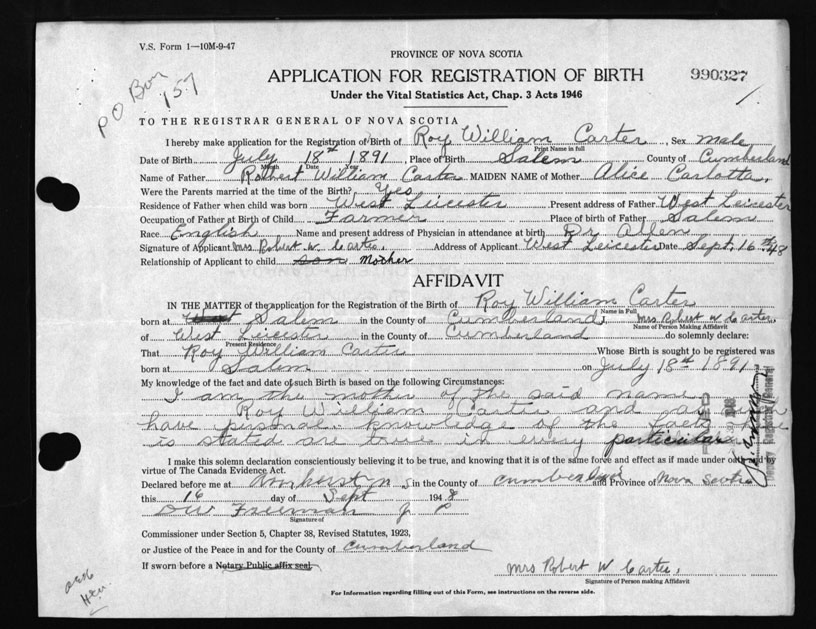 V.S. Form 1—10M-9-47
PROVINCE OF NOVA SCOTIA
PO Box 157
APPLICATION FOR REGISTRATION OF BIRTH
990327
Under the Vital Statistics Act, Chap. 3 Acts 1946
TO THE REGISTRAR GENERAL OF NOVA SCOTIA
I hereby make application for the Registration of Birth of Roy William Carter, Sex male
Print Name in full
Date of Birth July 18th 1891, Place of Birth Salem County of Cumberland
Month Date Year
Name of Father Robert William Carter MAIDEN NAME of Mother Alice Carlotta,
Were the Parents married at the time of the Birth? Yes
Residence of Father when child was born West Leicester Present address of Father West Leicester
Occupation of Father at Birth of Child Farmer Place of birth of Father Salem
Race English Name and present address of Physician in attendance at birth Dr Allen
Signature of Applicant Mrs Robert W. Carter. Address of Applicant West Leicester Date Sept. 16th 48
Relationship of Applicant to child son Mother
AFFIDAVIT
IN THE MATTER of the application for the Registration of the Birth of Roy William Carter
Name in Full
born at Salem in the County of Cumberland I, Mrs Robert W Carter.
Name of Person Making Affidavit
of West Leicester in the County of Cumberland do solemnly declare:
Present Residence
That Roy William Carter Whose Birth is sought to be registered was
born at Salem on July 18th 1891
My knowledge of the fact and date of such Birth is based on the following Circumstances:
I am the mother of the said name
Roy William Carter and as such
have personal knowledge of the facts
is stated are true in every particular
I make this solemn declaration conscientiously believing it to be true, and knowing that it is of the same force and effect as if made under oath by
virtue of The Canada Evidence Act.
Declared before me at Amherst N S in the County of Cumberland and Province of Nova Scotia
this 16 day of Sept 1948
DW Freeman J P
Signature of
Commissioner under Section 5, Chapter 38, Revised Statutes, 1923,
or Justice of the Peace in and for the County of Cumberland
If sworn before a Notary Public affix seal.
Mrs Robert W Carter.
Signature of Person making Affidavit
For Information regarding filling out of this Form, see instructions on the reverse side.